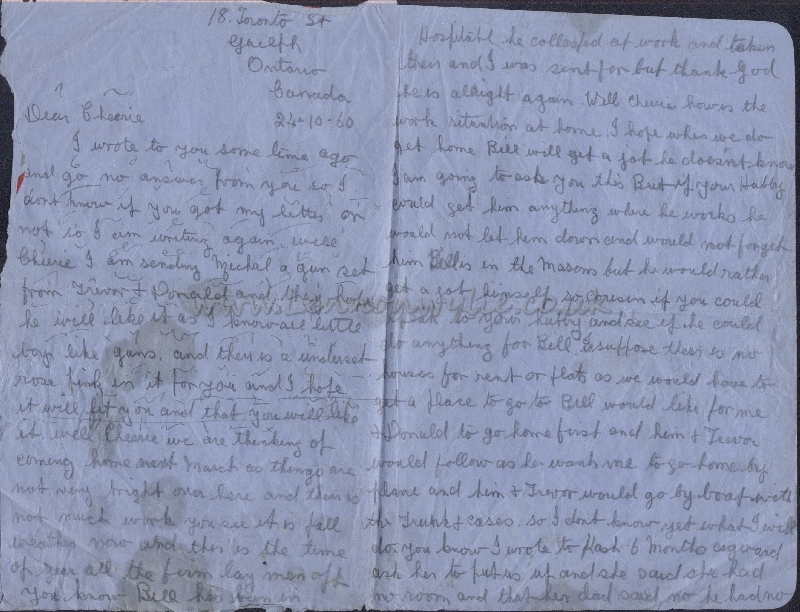 18. Toronto St
Guelph
Ontario
Canada
Dear Cheerie 24-10-60
I wrote to you some time ago
and go no answer from you so I
dont know if you got my letter or
not so I am writing again, well
Cheerie I am sending Michal a gun set
from Trevor & Donald and they hope
he will like it as I know all little
boys like guns. and there is a underset
rose pink in it for you and I hope
it will fit you and that you will like
it well Cheerie we are thinking of
coming home next March as things are
not very bright over here and there is
not much work you see it is fall
weather now and this is the time
of year all the firm lay men off
you know Bill has been in
Hospital he collasped at work and taken
their and I was sent for but thank God
he is alright again. Well Cheerie how is the
work situation at home. I hope when we do
get home Bill will get a job he doesnt know
I am going to ask you this But if your Hubby
could get him anything where he works he
would not let him down and would not forget
him Bill is in the Masons but he would rather
get a job himself so Cousin if you could
speak to your hubby and see if he could
do anything for Bill. I suppose there is no
houses for rent or flats as we would have to
get a place to go to Bill would like for me
& Donald to go home first and him & Trevor
would follow as he wants me to go home by
plane and him & Trevor would go by boat with
the Trunk & cases so I dont know yet what I will
do. you know I wrote to 6 Months ago and
ask her to put us up and she said she had
no room and that her dad said no he had no